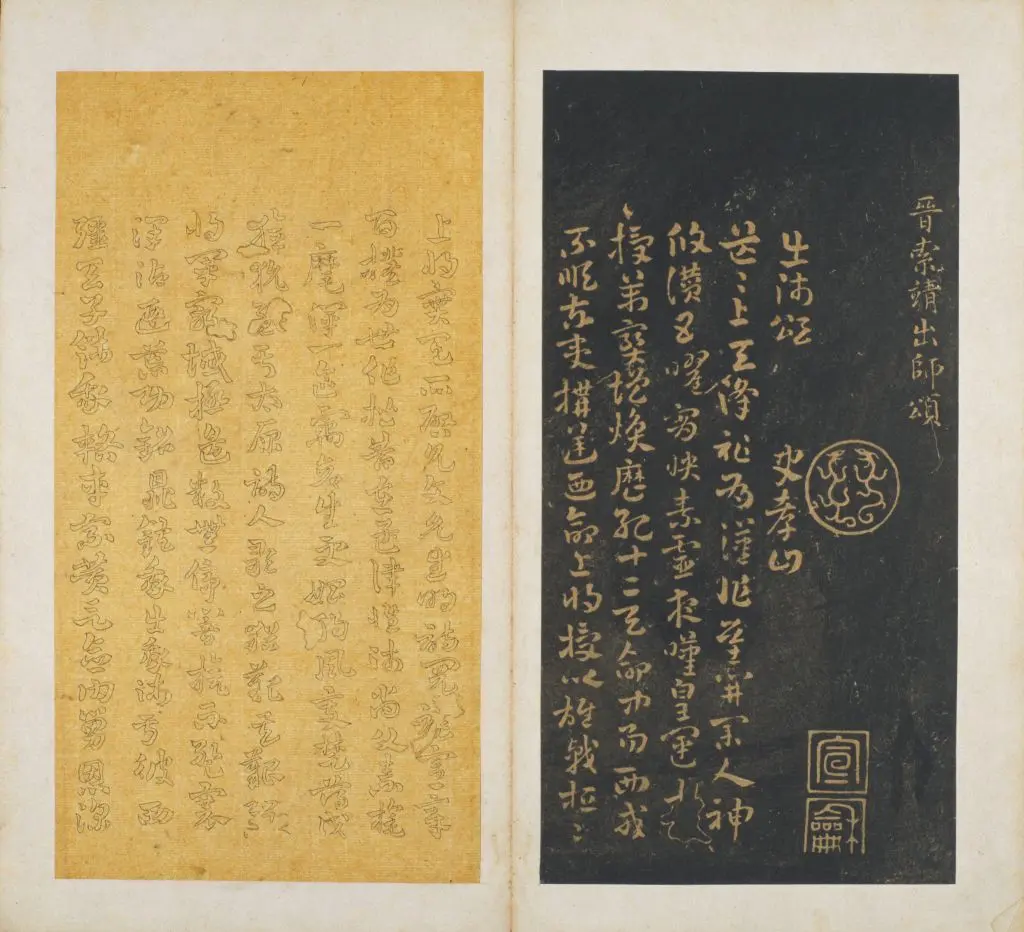 晉索靖出師頌
宣龢
出師頌
史孝山
茫〻上天降祚為漢作基開業人神
攸讚五曜霄映素靈夜嘆皇運來
授萬寶增煥歷紀十二天命中易西戎
不順東夷構逆乃命上將授以雄戟桓〻
上將實天所啟允文允武明詩閱禮憲章
百揆為世作楷昔在孟津惟師尚父素旄
一麾渾一區宇蒼生更始朔風變楚薄伐
獫狁至于太原詩人歌之猶歎其艱況我
將軍窮城極邊鼓無停響旗不蹔褰
澤沾遐荒功銘鼎鉉我出我師于彼西
疆天子餞我路車乘黃言念伯舅恩深